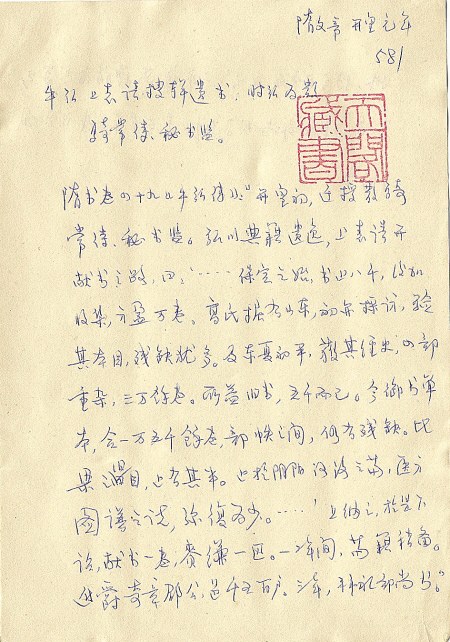 隋文帝 开皇元年
581
牛弘上表请搜辑遗书,时弘为散
骑常侍、秘书监。
天閣藏書
隋书卷四十九牛弘传云“开皇初,迁授散骑
常侍、秘书监。弘以典籍遗逸,上表请开
献书之路,曰:‘……保定之始,书止八千,后加
收集,方盈万卷。高氏据有山东,初亦采访,验
其本目,残缺犹多。及东夏初平,获其经史,四部
重杂,三万余卷。所益旧书,五千而已。今御书单
本,合一万五千餘卷,部帙之间,仍有残缺。比
梁之旧目,止有其半。至於阴阳河洛之篇,医方
图谱之说,弥復为少。……’上纳之,於是下
诏,献书一卷,赉缣一匹。一二年间,篇籍稍备。
进爵奇章郡公,邑千五百户。三年,拜礼部尚书。”